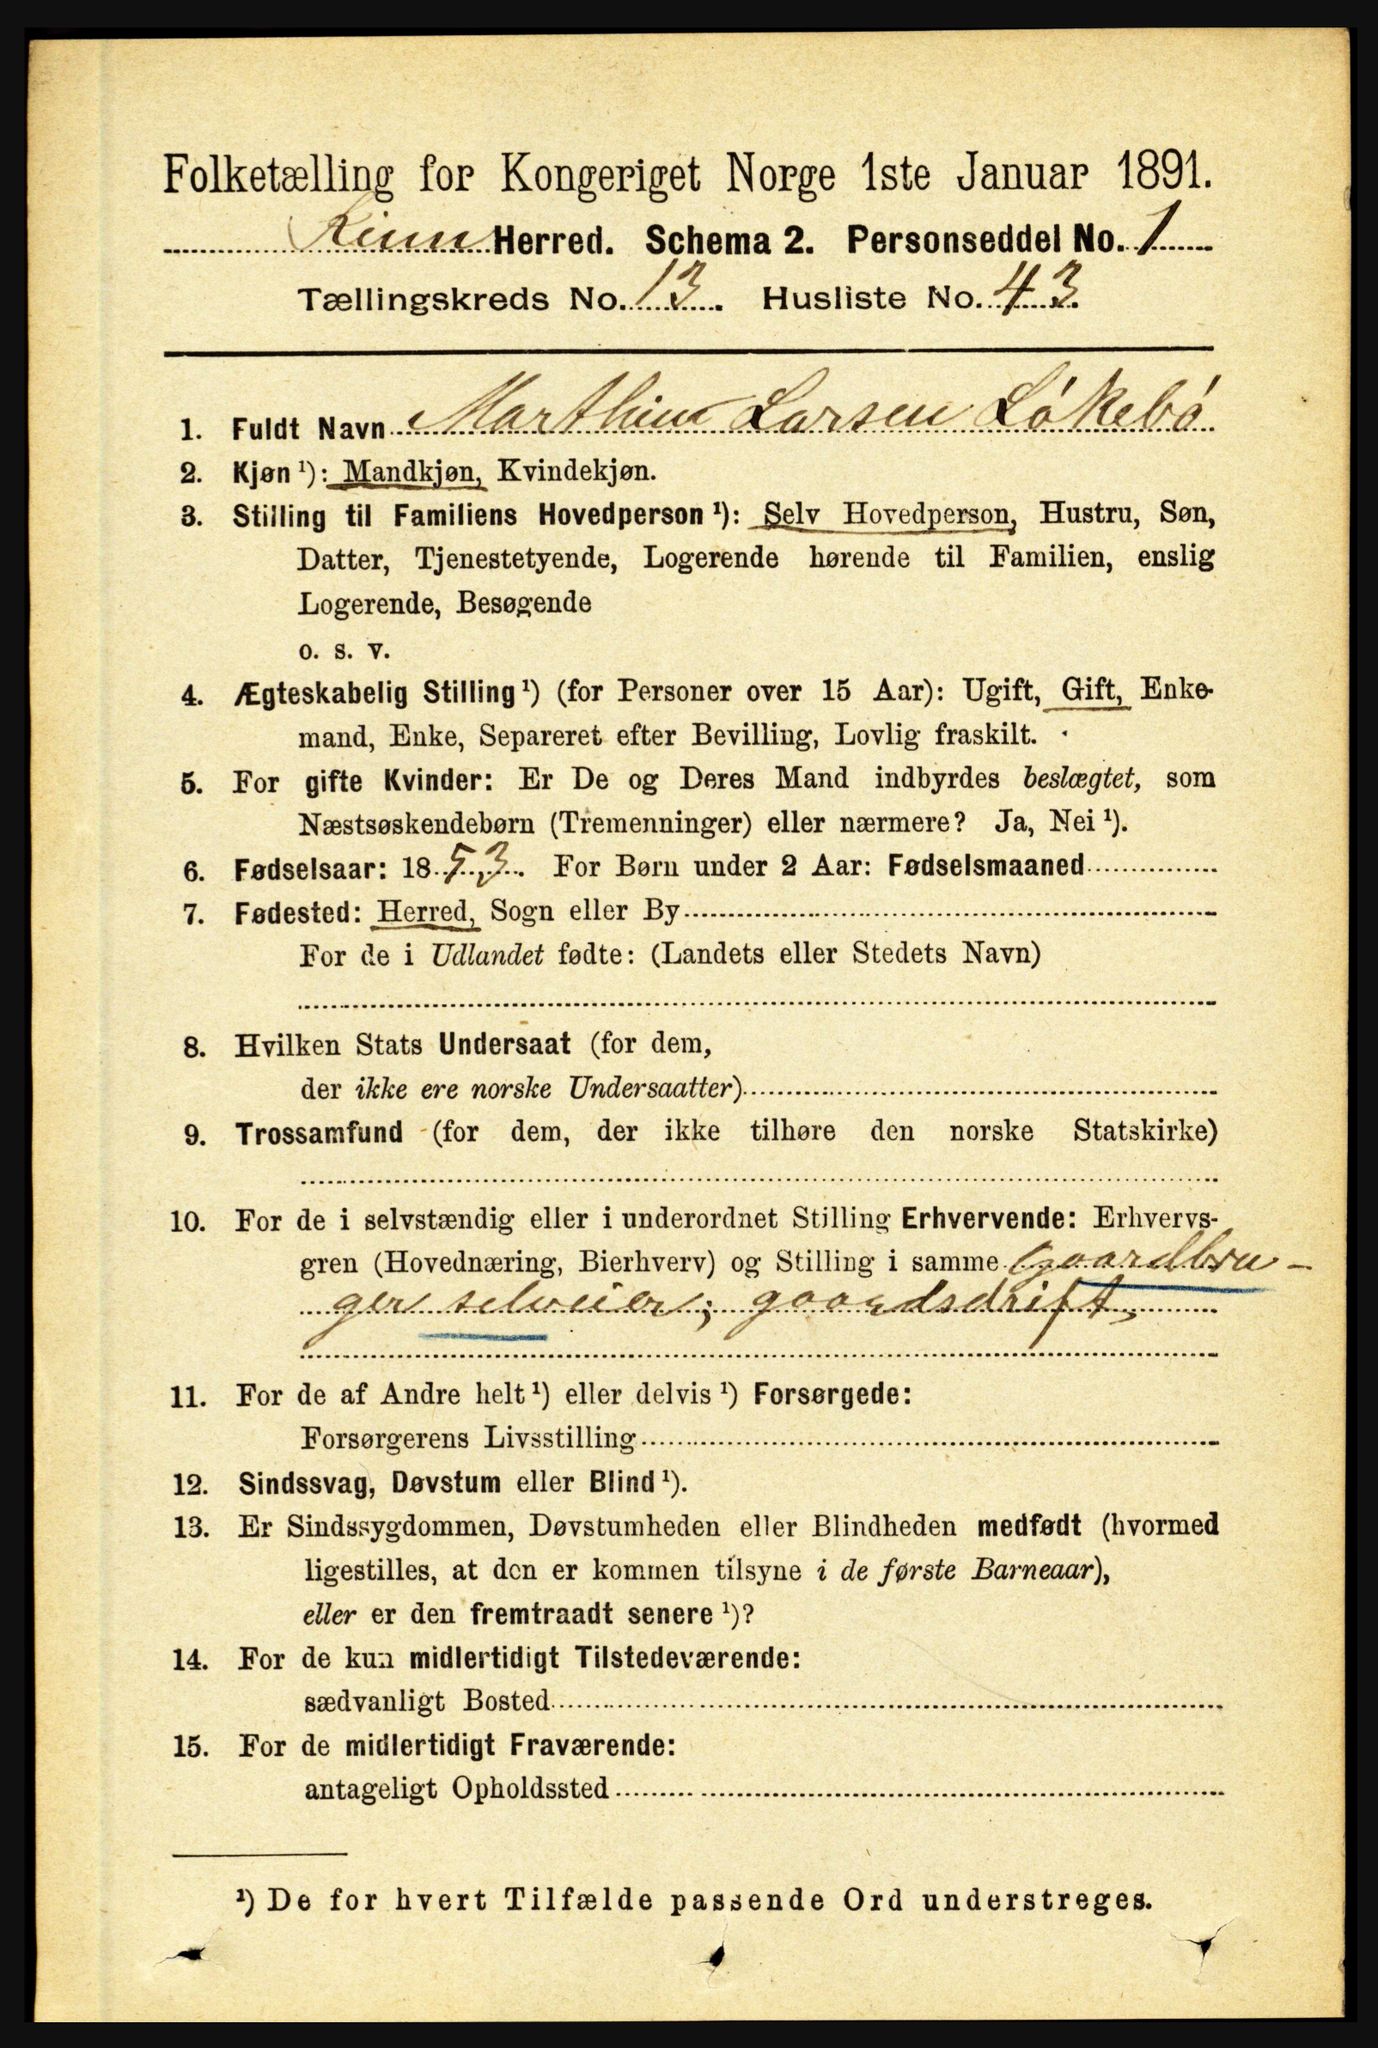 Folketælling for Kongeriget Norge 1ste Januar 1891.
Kinn Herred. Schema 2. Personseddel No. 1
Tællingskreds No. 13. Husliste No. 43.
1. Fuldt Navn Marthin Larsen Løkebó
2. Kjøn ¹): Mandkjøn, Kvindekjøn.
3. Stilling til Familiens Hovedperson ¹): Selv Hovedperson, Hustru, Søn,
Datter, Tjenestetyende, Logerende hørende til Familien, enslig
Logerende, Besøgende
o. s. v.
4. Ægteskabelig Stilling ¹) (for Personer over 15 Aar): Ugift, Gift, Enke-
mand, Enke, Separeret efter Bevilling, Lovlig fraskilt.
5. For gifte Kvinder: Er De og Deres Mand indbyrdes beslægtet, som
Næstsøskendebørn (Tremenninger) eller nærmere? Ja, Nei ¹).
6. Fødselsaar: 1853. For Børn under 2 Aar: Fødselsmaaned
7. Fødested: Herred, Sogn eller By
For de i Udlandet fødte: (Landets eller Stedets Navn)
8. Hvilken Stats Undersaat (for dem,
der ikke ere norske Undersaatter)
9. Trossamfund (for dem, der ikke tilhøre den norske Statskirke)
10. For de i selvstændig eller i underordnet Stilling Erhvervende: Erhvervs-
gren (Hovednæring, Bierhverv) og Stilling i samme Gaardbru-
ger selveier; gaardsdrift,
11. For de af Andre helt ¹) eller delvis ¹) Forsørgede:
Forsørgerens Livsstilling
12. Sindssvag, Døvstum eller Blind ¹).
13. Er Sindssygdommen, Døvstumheden eller Blindheden medfødt (hvormed
ligestilles, at den er kommen tilsyne i de første Barneaar),
eller er den fremtraadt senere ¹)?
14. For de kun midlertidigt Tilstedeværende:
sædvanligt Bosted
15. For de midlertidigt Fraværende:
antageligt Opholdssted
¹) De for hvert Tilfælde passende Ord understreges.